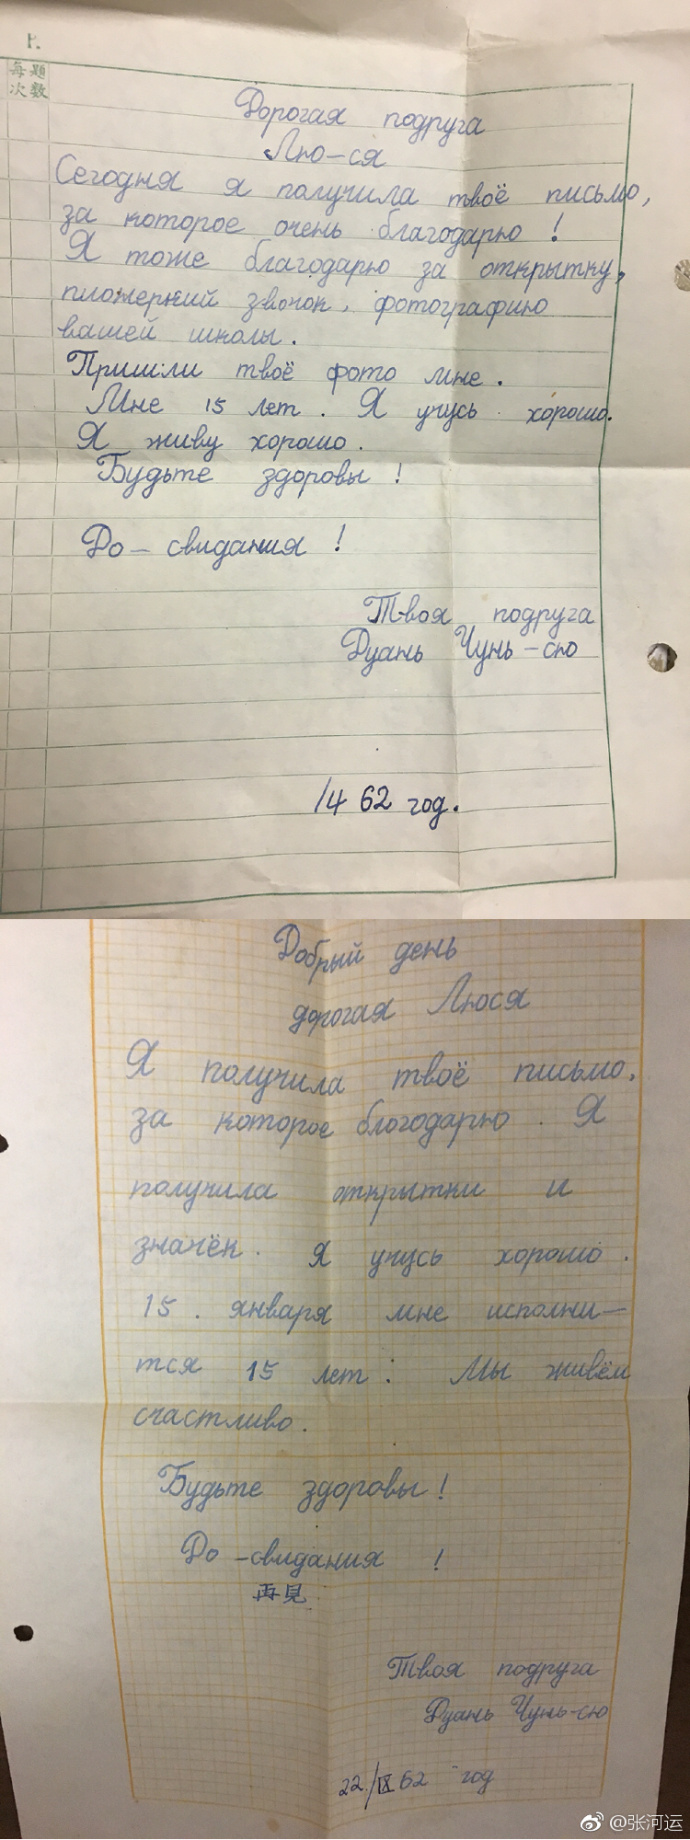 每题
次数
Дорогая подруга
Лю-ся
Сегодня я получила твоё письмо,
за которое очень благодарю!
Я тоже благодарю за открытку,
звонок, фотографию
вашей школы.
Пришли твоё фото мне.
Мне 15 лет. Я учусь хорошо.
Я живу хорошо.
Будьте здоровы!
До-свидания!
Твоя подруга
Дуань Чунь-сю
14 62 год.
Добрый день
дорогая Люся
Я получила твоё письмо,
за которое благодарю. Я
получила открытки и
значёк. Я учусь хорошо.
15. января мне исполни-
тся 15 лет: Мы живём
счастливо.
Будьте здоровы!
До-свидания!
再見
Твоя подруга
Дуань Чунь-сю
22/IX 62 год
@张河运